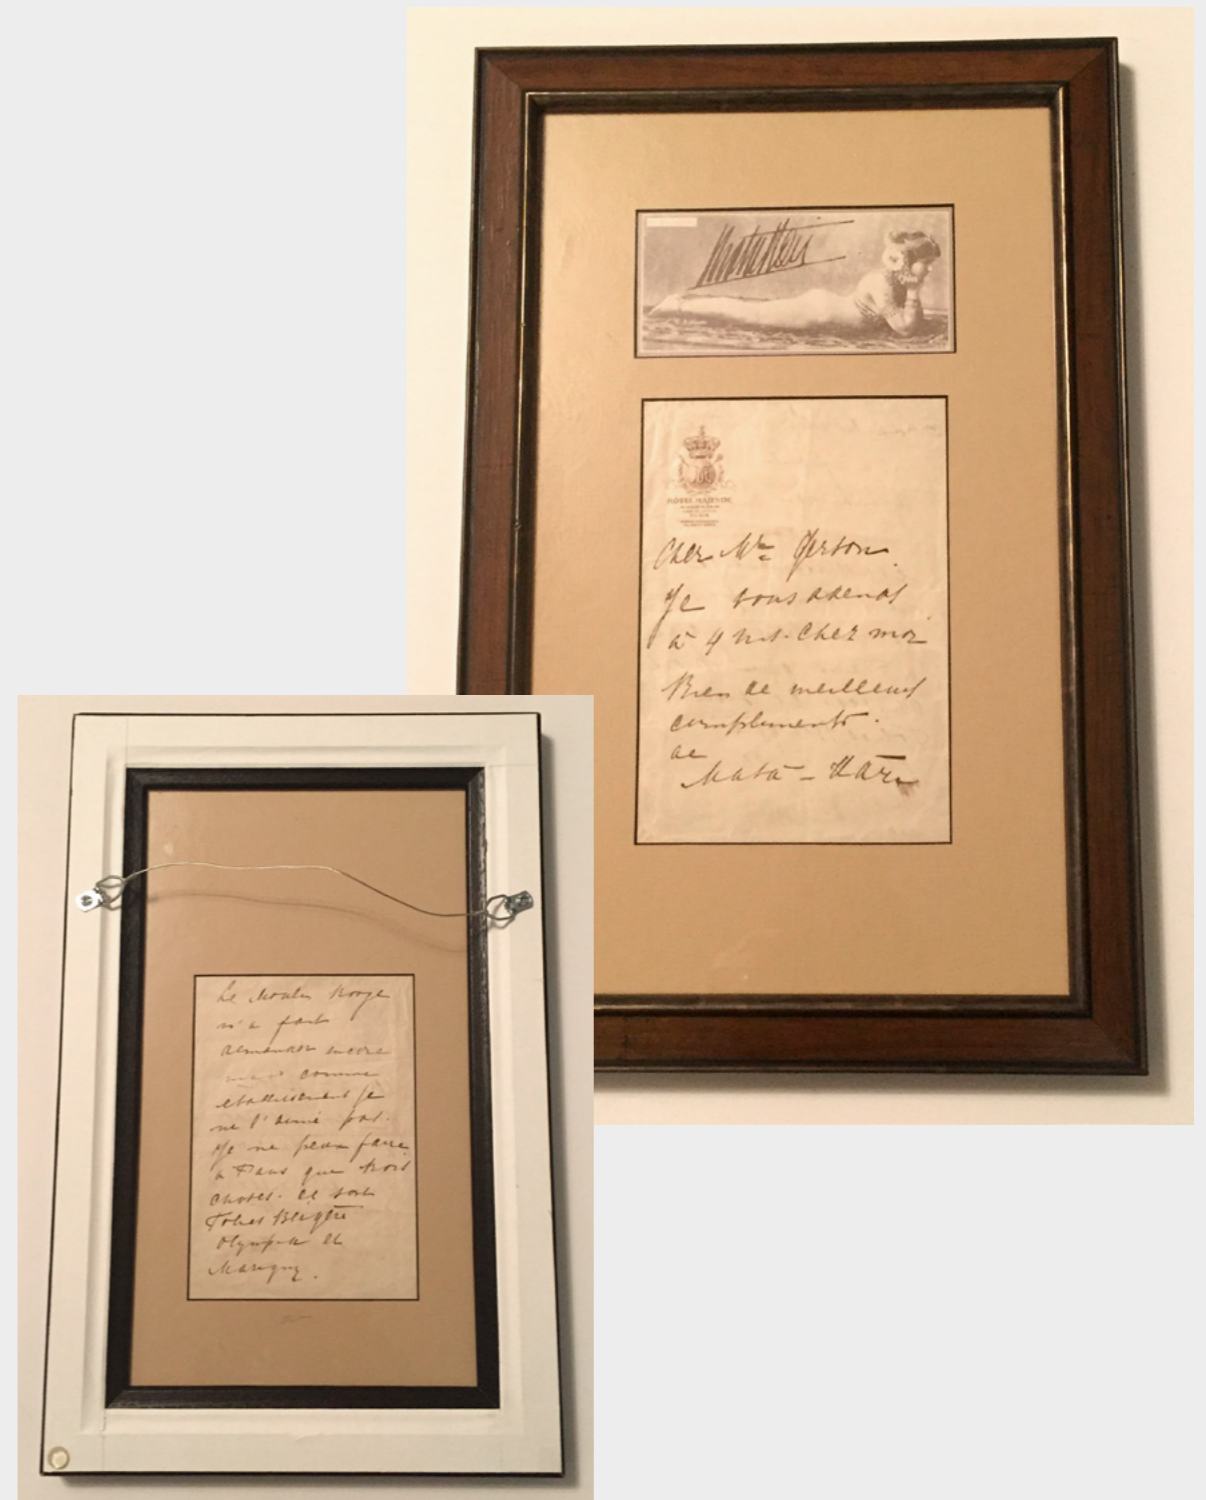 Mata Hari
HÔTEL MAJESTIC
PARIS
Cher Mr Gerson.
Je vous attends
à 4 h. chez moi
Bien de meilleurs
compliments.
de
Mata-Hari
Le Moulin Rouge
m'a fait
demander encore
mais comme
etablissement je
ne l'aime pas.
Je ne peux faire
à Paris que trois
choses. ce sont
Folies Bergère
Olympia et
Marigny.